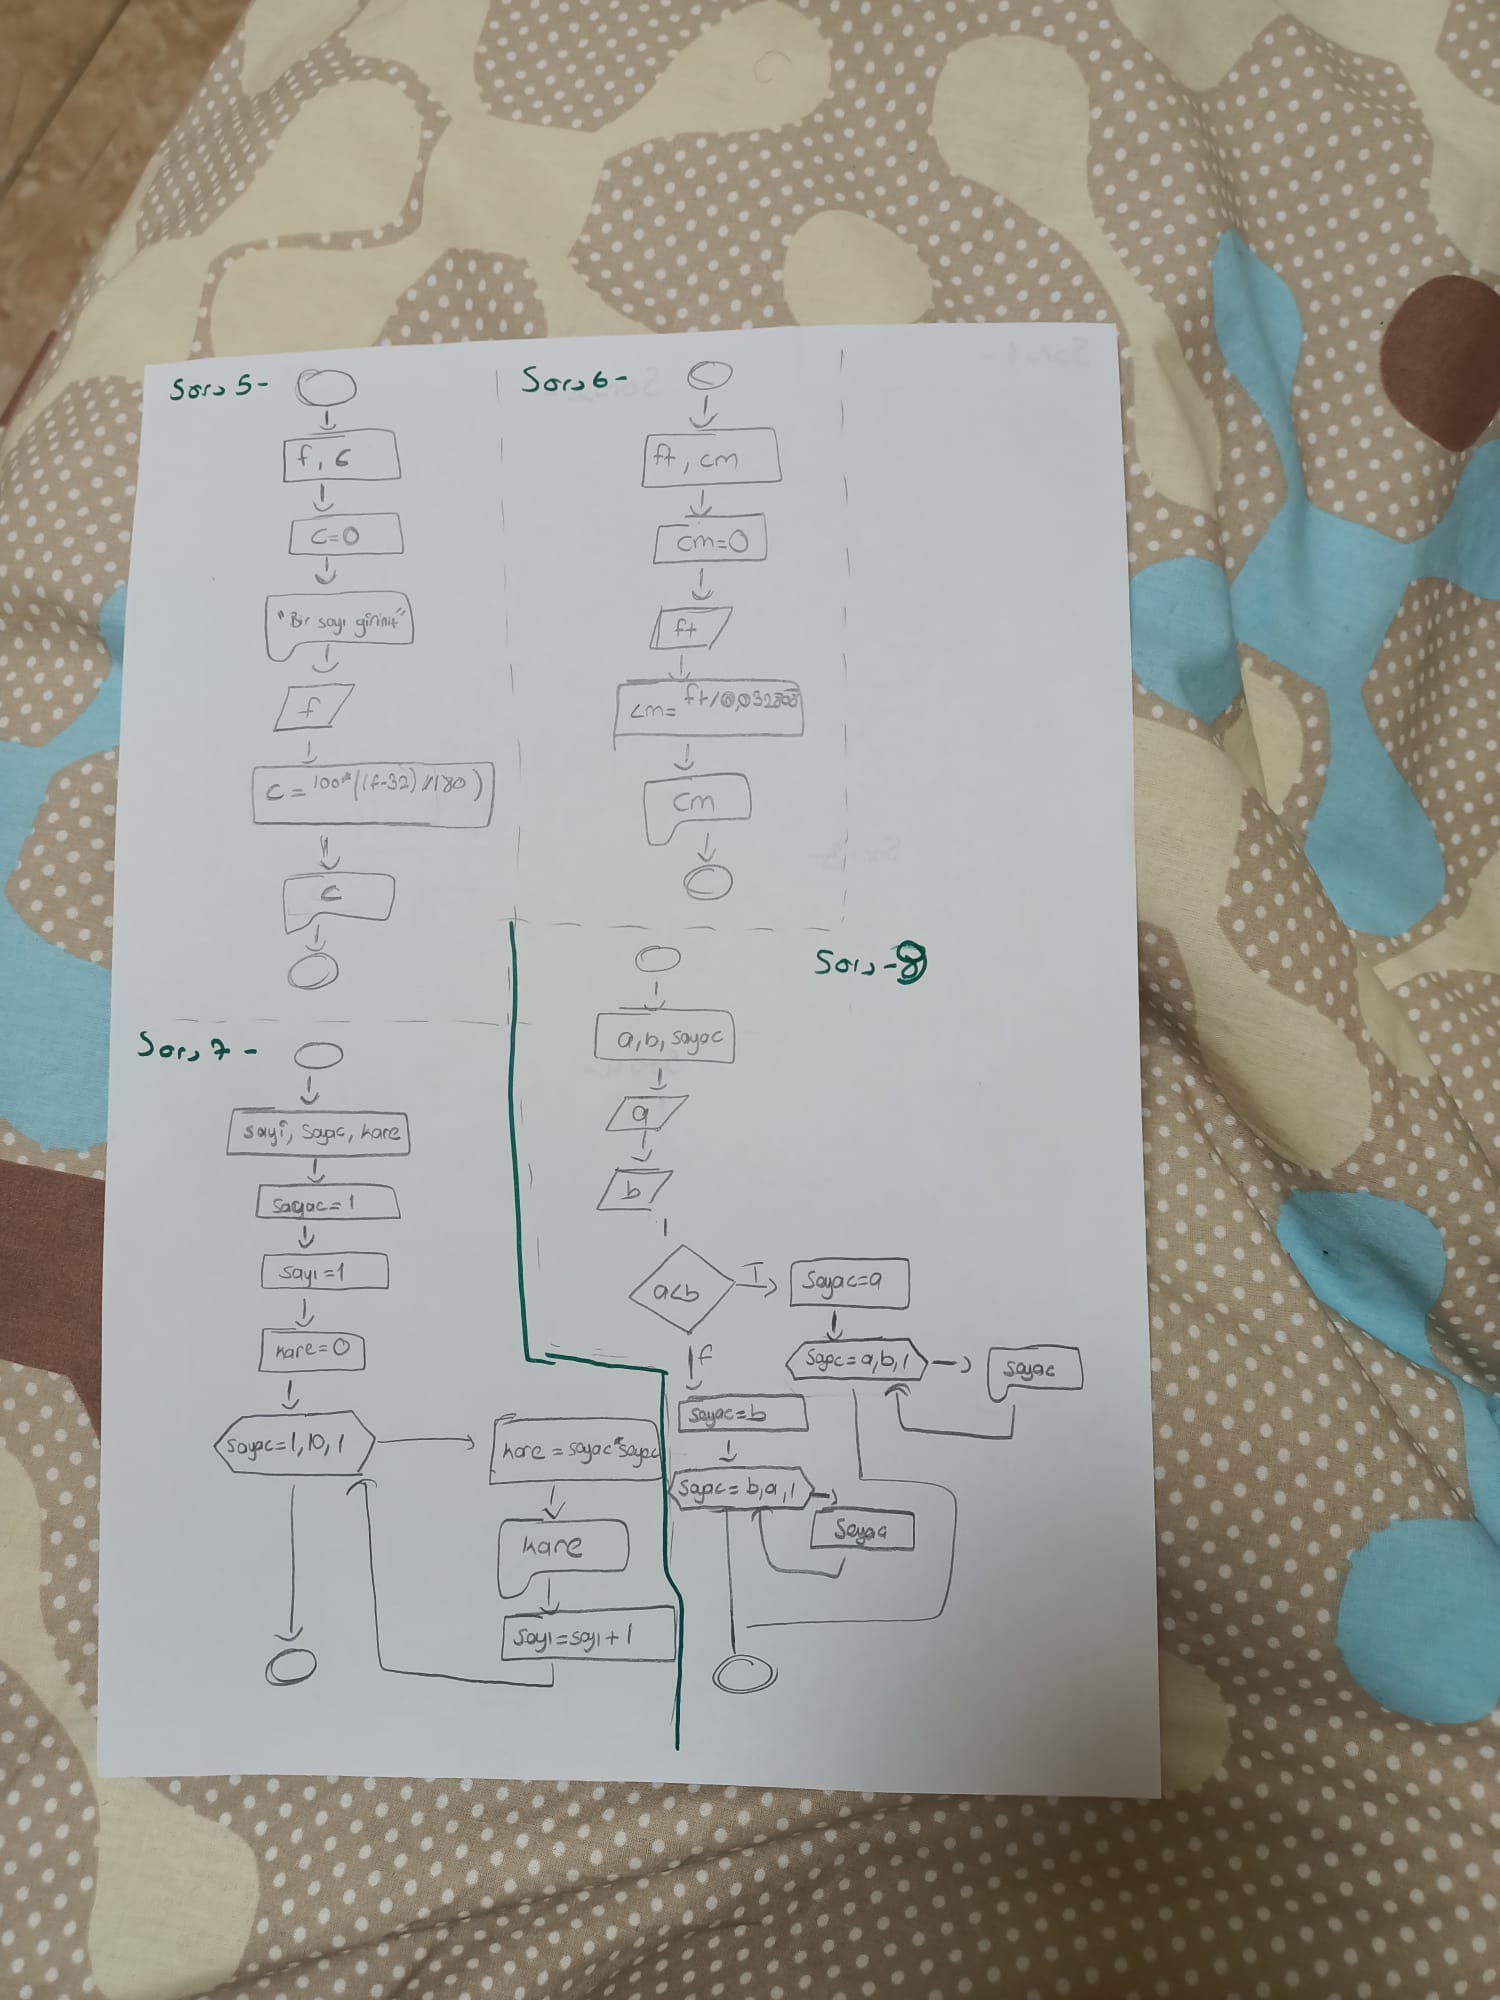 Soru 5-
f, c
C=0
"Bir sayı giriniz"
f
C = 100*((f-32)/180)
c
Soru 6-
ft, cm
cm=0
ft
cm= ft/0,032808
cm
Soru 7-
sayı, Sayac, kare
sayac=1
sayı=1
kare=0
sayac=1,10,1
kare = sayac*sayac
kare
sayı=sayı+1
Soru -8
a,b, sayac
a
b
a<b
T
Sayac=a
Sayac=a,b,1
Sayac
f
Sayac=b
Sayac= b,a,1